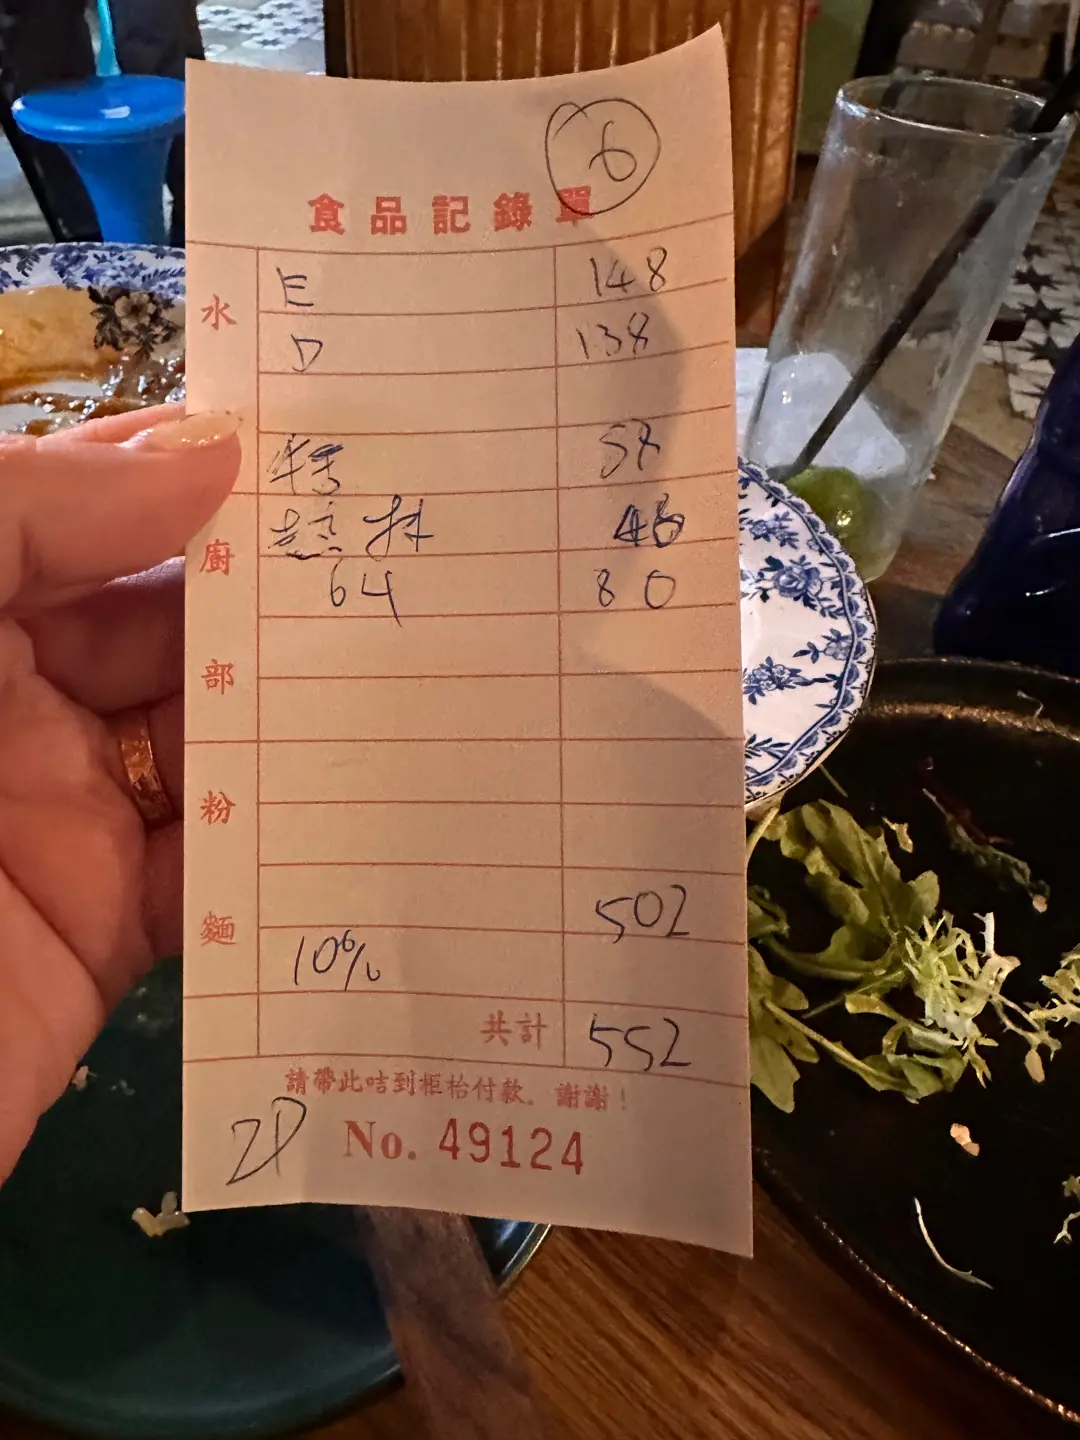 6
食品記錄單
水
E 148
D 138
58
廚
64 80
部
粉
麵
502
10%
共計 552
請帶此咭到柜枱付款。謝謝!
2P
No. 49124